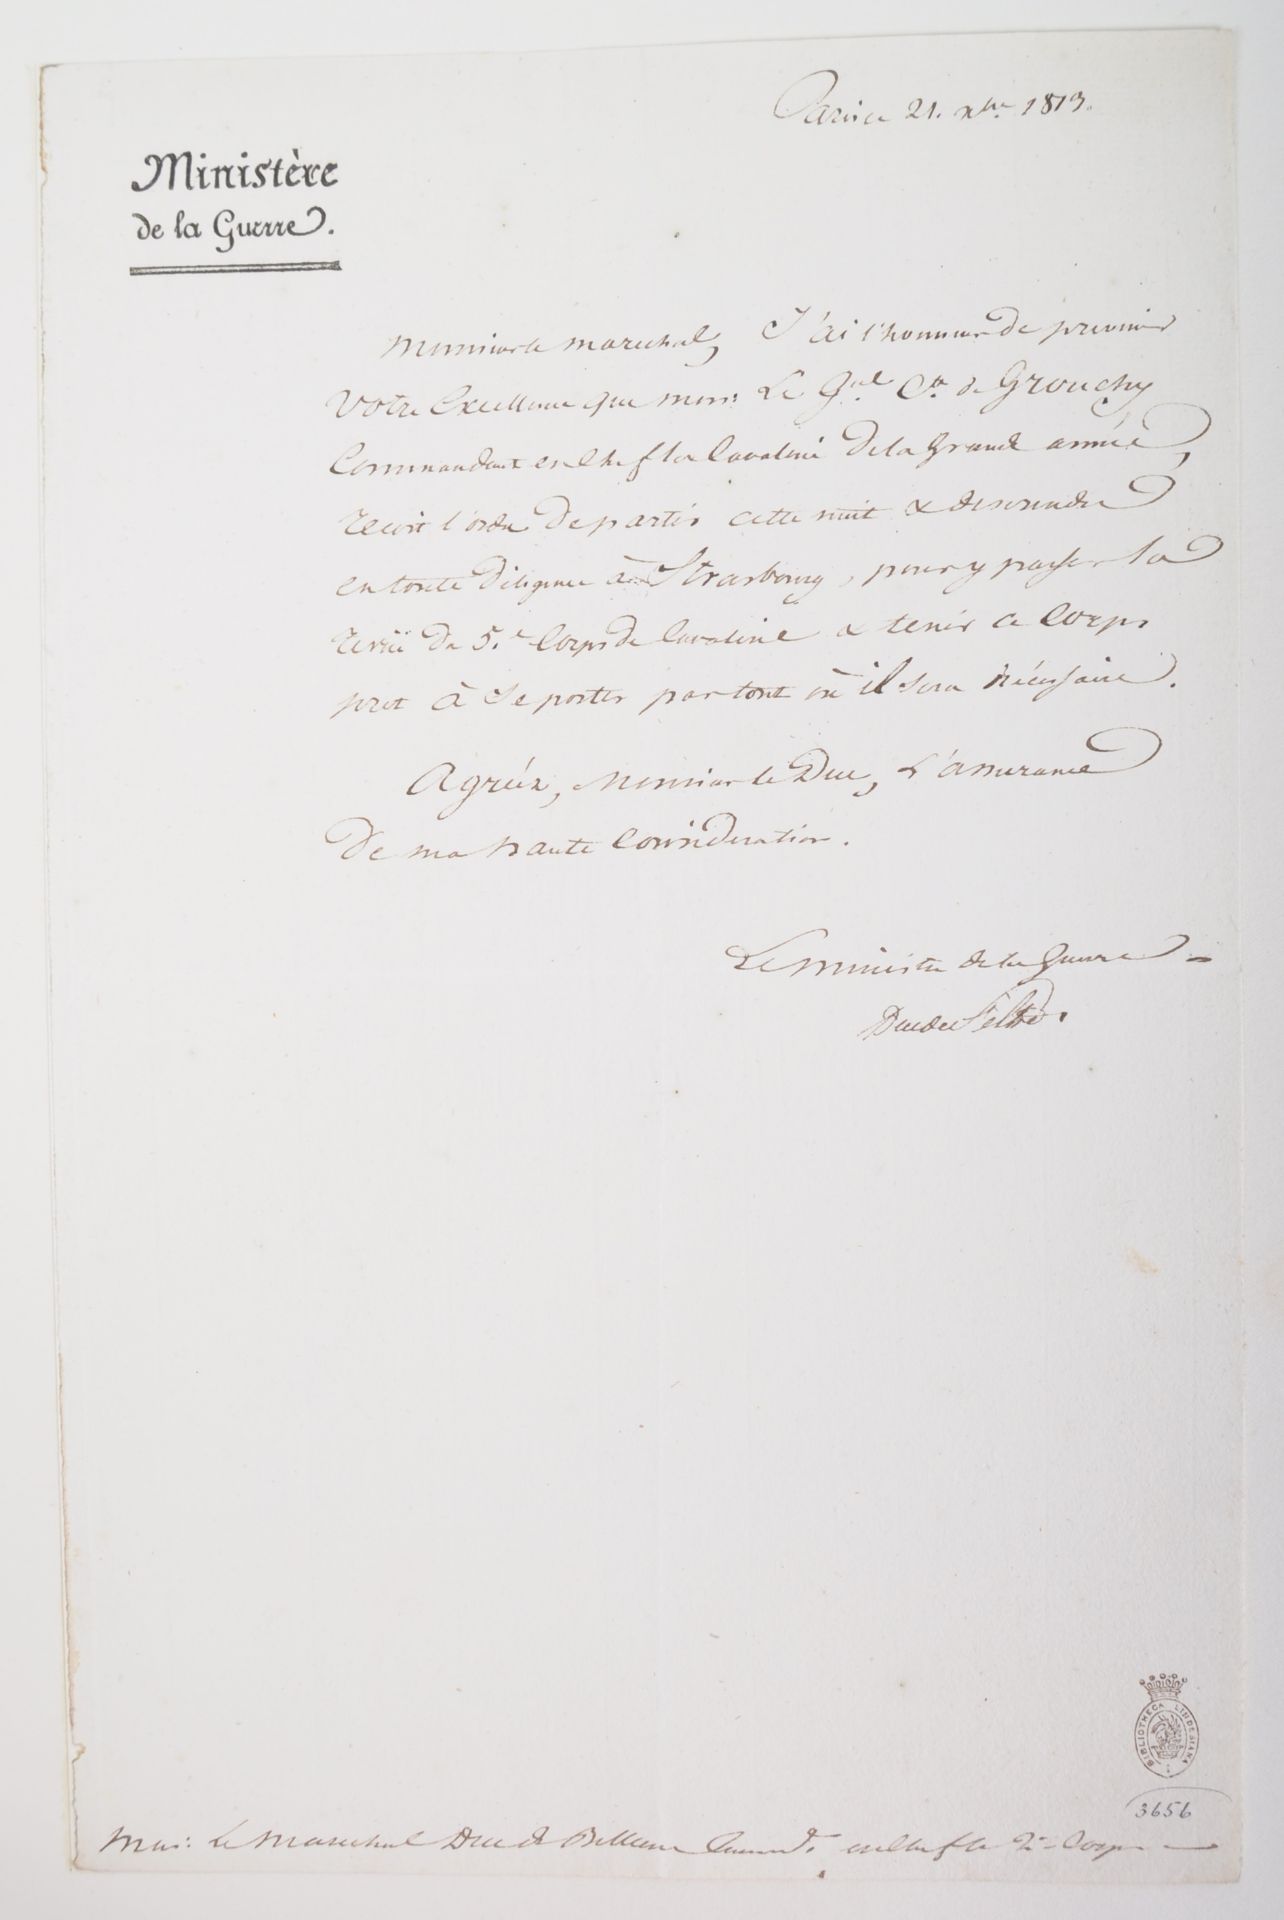 Paris ce 21. xbre 1813.
Ministère
de la Guerre.
Monsieur le marechal, J'ai l'honneur de prevenir
Votre Excellence que mons: Le Gnal Cte de Grouchy
Commandant en chef la Cavalerie de la Grande armée,
recoit l'ordre de partir cette nuit & de se rendre
en toute diligence à Strasbourg, pour y passer la
revuë du 5.e Corps de Cavalerie & tenir ce Corps
pret à se porter par tout où il sera nécessaire.
Agréez, Monsieur le Duc, L'assurance
de ma haute Consideration.
Le ministre de la Guerre
Duc de Feltre.
BIBLIOTHECA LINDESIANA
3656
Mons: Le Marechal Duc de Bellune Command.t en chef le 2e Corps